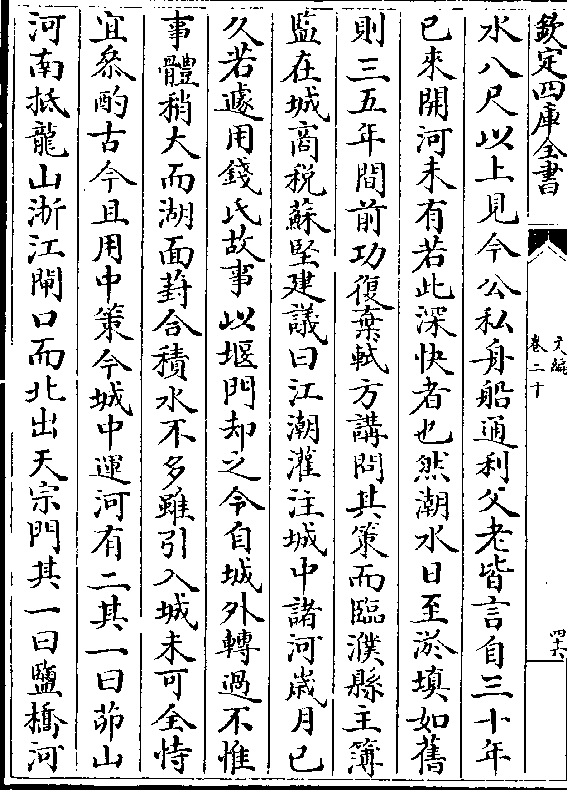 欽定四庫全書
文編
卷二十
四六
水八尺以上見今公私舟船通利父老皆言自三十年
已來開河未有若此深快者也然潮水日至淤填如舊
則三五年間前功復棄軾方講問其策而臨濮縣主簿
監在城商税蘇堅建議曰江潮灌注城中諸河歲月已
久若遽用錢氏故事以堰門却之令自城外轉過不惟
事體稍大而湖面葑合積水不多雖引入城未可全恃
宜叅酌古今且用中策今城中運河有二其一曰茆山
河南抵龍山浙江閘口而北出天宗門其一曰鹽橋河